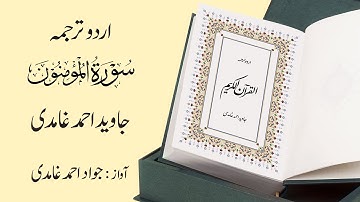 اردو ترجمہ
سورۃ المؤمنون
جاوید احمد غامدی
آواز : جواد احمد غامدی
القرآن الکریم
جاوید احمد غامدی